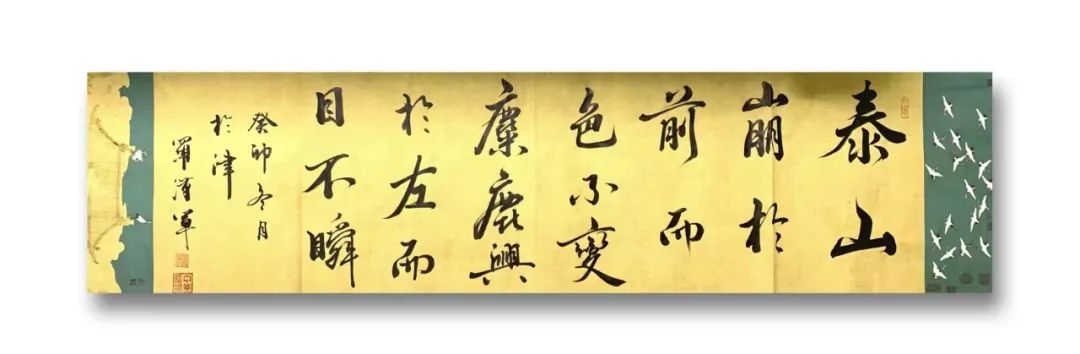 泰山
崩於
前而
色不變
麋鹿興
於左而
目不瞬
癸卯冬月
於津
羅漢軍